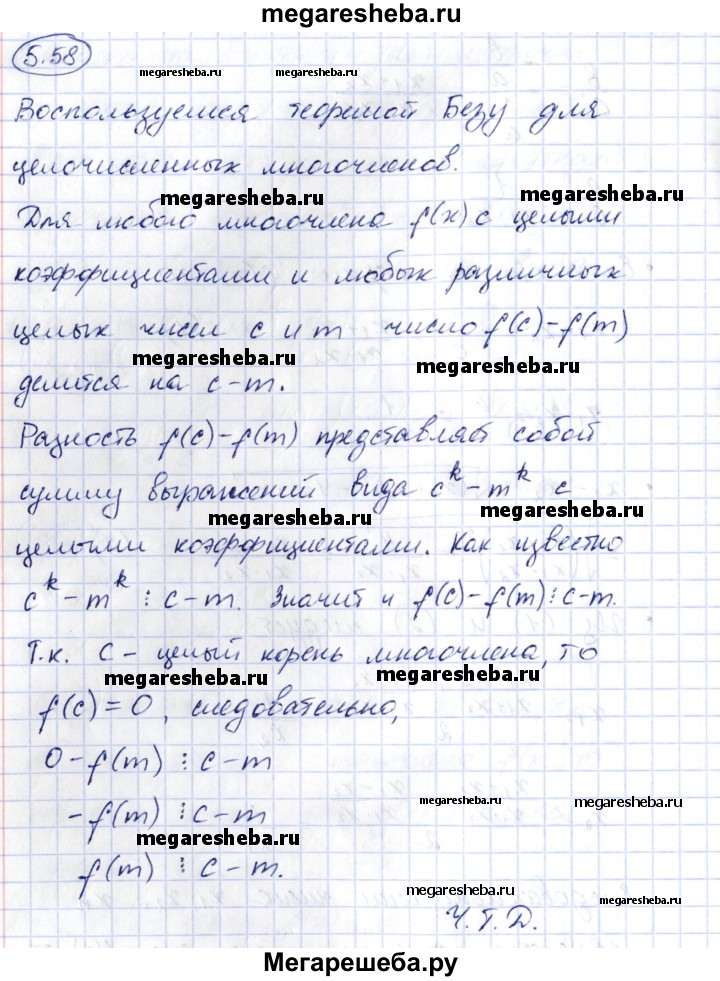 megaresheba.ru
5.58
megaresheba.ru megaresheba.ru
Воспользуемся теоремой Безу для
целочисленных многочленов.
megaresheba.ru megaresheba.ru
Для любого многочлена f(x) с целыми
коэффициентами и любых различных
целых чисел c и m число f(c)-f(m)
megaresheba.ru megaresheba.ru
делится на c-m.
Разность f(c)-f(m) представляет собой
сумму выражений вида c^k-m^k с
megaresheba.ru megaresheba.ru
целыми коэффициентами. Как известно
c^k-m^k ⋮ c-m. Значит и f(c)-f(m)⋮c-m.
Т.к. c - целый корень многочлена, то
megaresheba.ru megaresheba.ru
f(c)=0, следовательно,
0-f(m) ⋮ c-m
megaresheba.ru megaresheba.ru
-f(m) ⋮ c-m
megaresheba.ru
f(m) ⋮ c-m.
megaresheba.ru
Ч.Т.Д.
Мегарешеба.ру